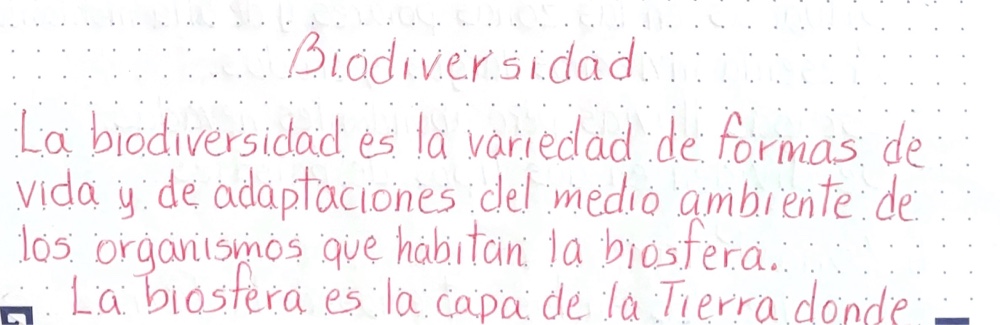 Biodiversidad
La biodiversidad es la variedad de formas de
vida y de adaptaciones del medio ambiente de
los organismos que habitan la biosfera.
La biosfera es la capa de la Tierra donde